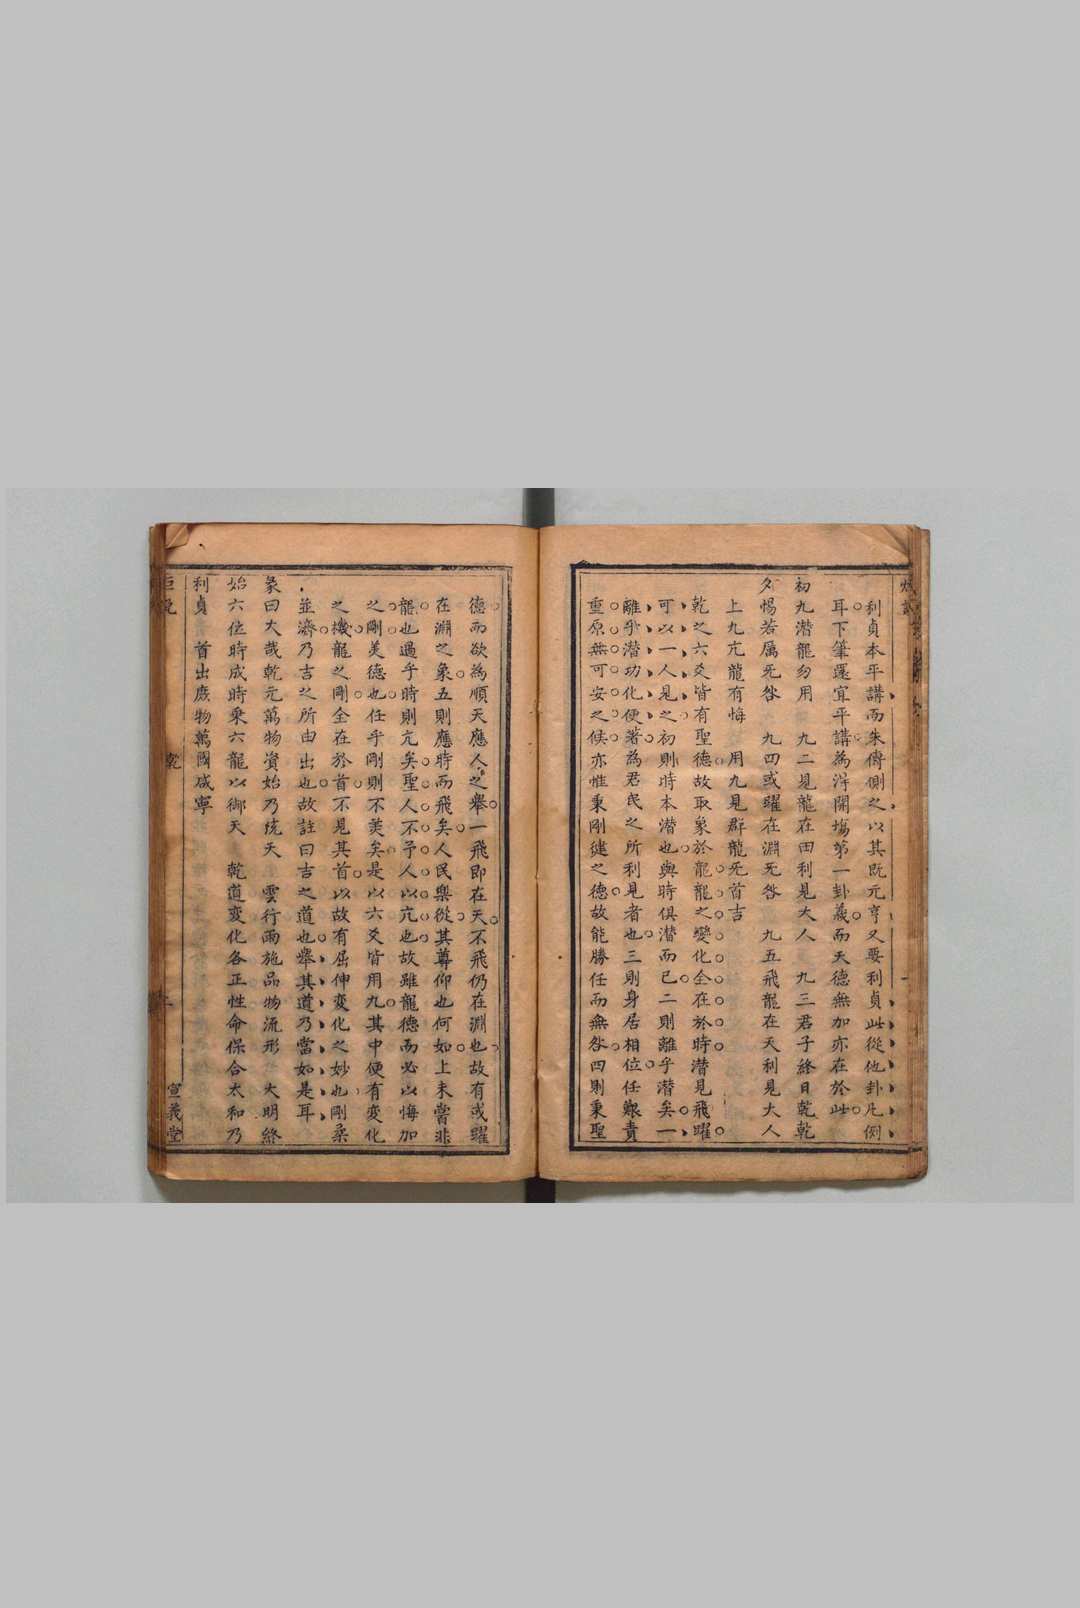 利貞本平講而朱傳側之以其既元亨又要利貞此從他卦凡例
耳下筆還宜平講為得開塲第一卦羲而天德無加亦在於此
初九潜龍勿用　九二見龍在田利見大人　九三君子終日乾乾
夕惕若厲旡咎　九四或躍在淵旡咎　九五飛龍在天利見大人
上九亢龍有悔　用九見群龍旡首吉
乾之六爻皆有聖德故取象於龍龍之變化全在於時潜見飛躍
可以一人見之初則時本潜也與時俱潜而已二則離乎潜矣一
離乎潜功化便著為君民之所利見者也三則身居相位任艱責
重原無可安之候亦惟秉剛健之德故能勝任而無咎四則秉聖
德而欲為順天應人之舉一飛即在天不飛仍在淵也故有或躍
在淵之象五則應時而飛矣人民樂從其尊仰也何如上未嘗非
龍也過乎時則亢矣聖人不予人以亢也故雖龍德而必以悔加
之剛美德也任乎剛則不羙矣是以六爻皆用九其中便有变化
之機龍之剛全在於首不見其首以故有屈伸变化之妙也剛柔
並濟乃吉之所由出也故註曰吉之道也舉其道乃當如是耳
彖曰大哉乾元萬物資始乃統天　雲行雨施品物流形　大明終
始六位時成時乘六龍以御天　乾道变化各正性命保合太和乃
利貞　首出庻物萬國咸寧
乾
宣義堂